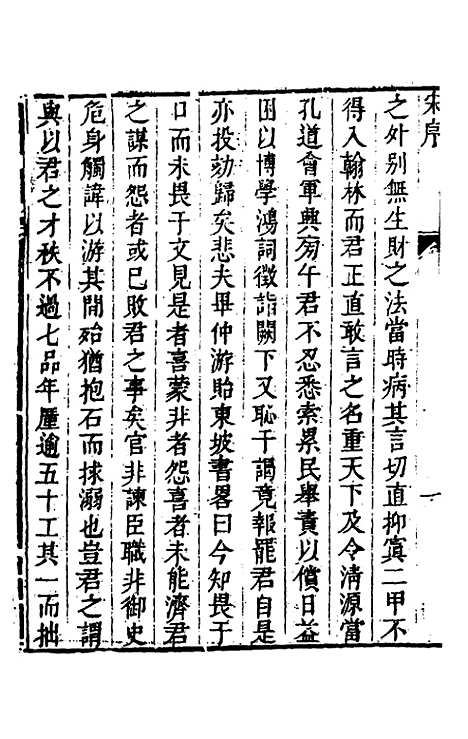 宋序
之外别無生財之法當時病其言切直抑寘二甲不
得入翰林而君正直敢言之名重天下及令清源當
孔道會軍興旁午君不忍悉索累民舉責以償日益
困以博學鴻詞徵詣闕下又恥干謁竟報罷君自是
亦投劾歸矣悲夫畢仲游貽東坡書畧曰今知畏于
口而未畏于文見是者喜蒙非者怨喜者未能濟君
之謀而怨者或已敗君之事矣官非諫臣職非御史
危身觸諱以游其間殆猶抱石而捄溺也豈君之謂
與以君之才秩不過七品年廑逾五十工其一而拙
一